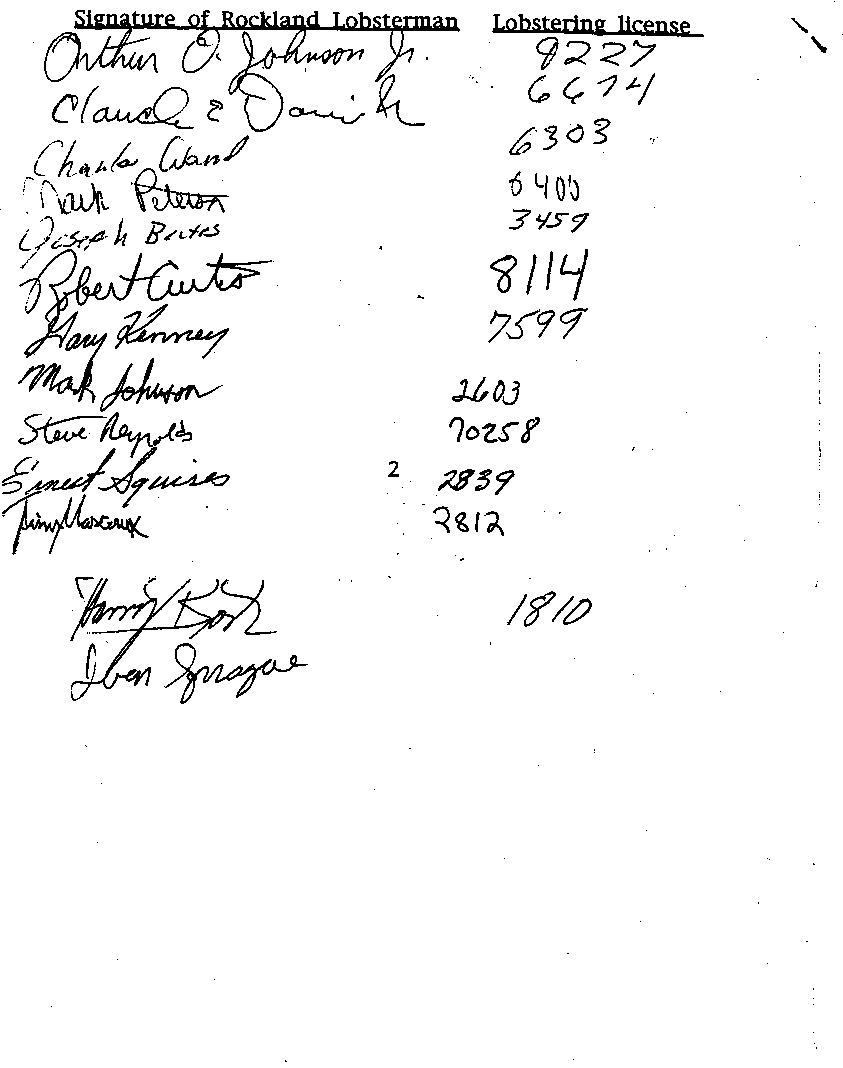 Signature of Rockland Lobsterman Lobstering license
Arthur O. Johnson Jr. 9227
Claude E Davis Jr 6674
Charles Wand 6303
Mark Peterson 6400
Joseph Bates 3459
Robert Curtis 8114
Gary Kenney 7599
Mark Johnson 2603
Steve Reynolds 70258
Ernest Squires 2 2839
2812
Harry 1810
Iven Sprague